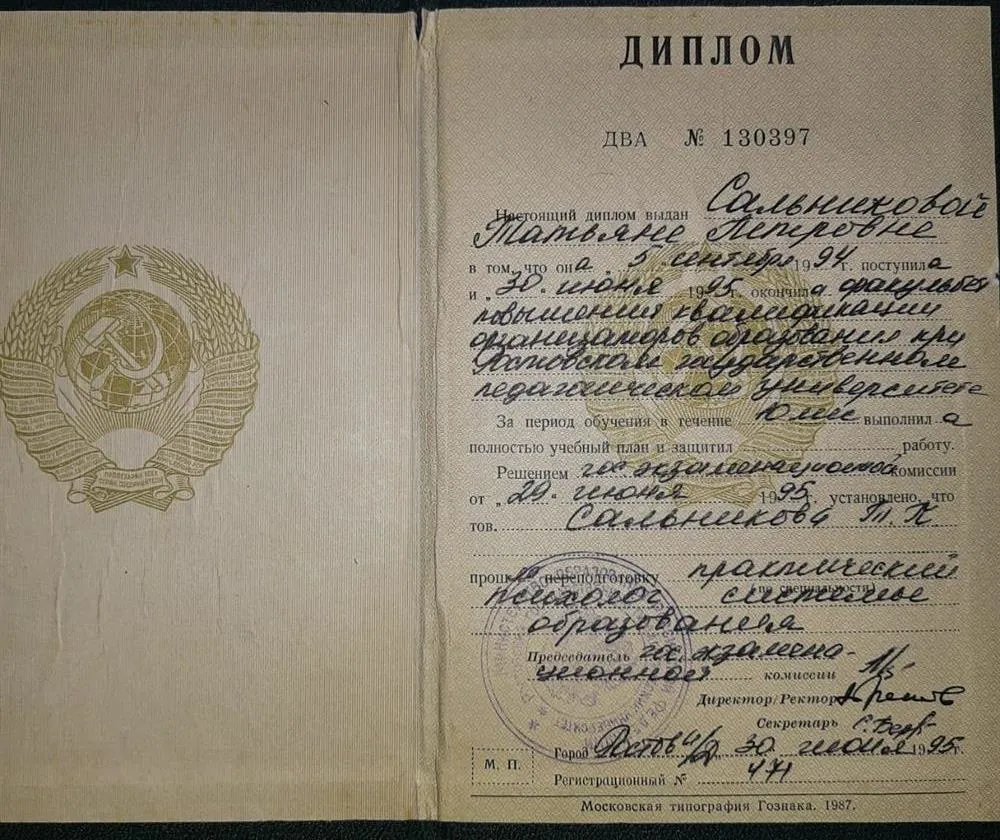 ПРОЛЕТАРИИ ВСЕХ
СТРАН, СОЕДИНЯЙТЕСЬ!
ДИПЛОМ
ДВА № 130397
Настоящий диплом выдан Сальниковой
Татьяне Петровне
в том, что она „5 сентября 1994 г. поступила
и „30" июня 1995 г. окончила факультет
повышения квалификации
организаторов образования при
Ростовском государственном
педагогическом университете
За период обучения в течение 10 мес выполнила
полностью учебный план и защитил работу.
Решением гос. экзаменационной комиссии
от „29" июня 1995 г. установлено, что
тов. Сальникова Т. П
прошла переподготовку практический
(по специальности)
психолог системы
образования
Председатель гос. экзамена-
ционной комиссии
Директор/Ректор
Секретарь
Город Ростов н/Д „30" июня 1995 г.
М. П.
Регистрационный № 471
Московская типография Гознака. 1987.